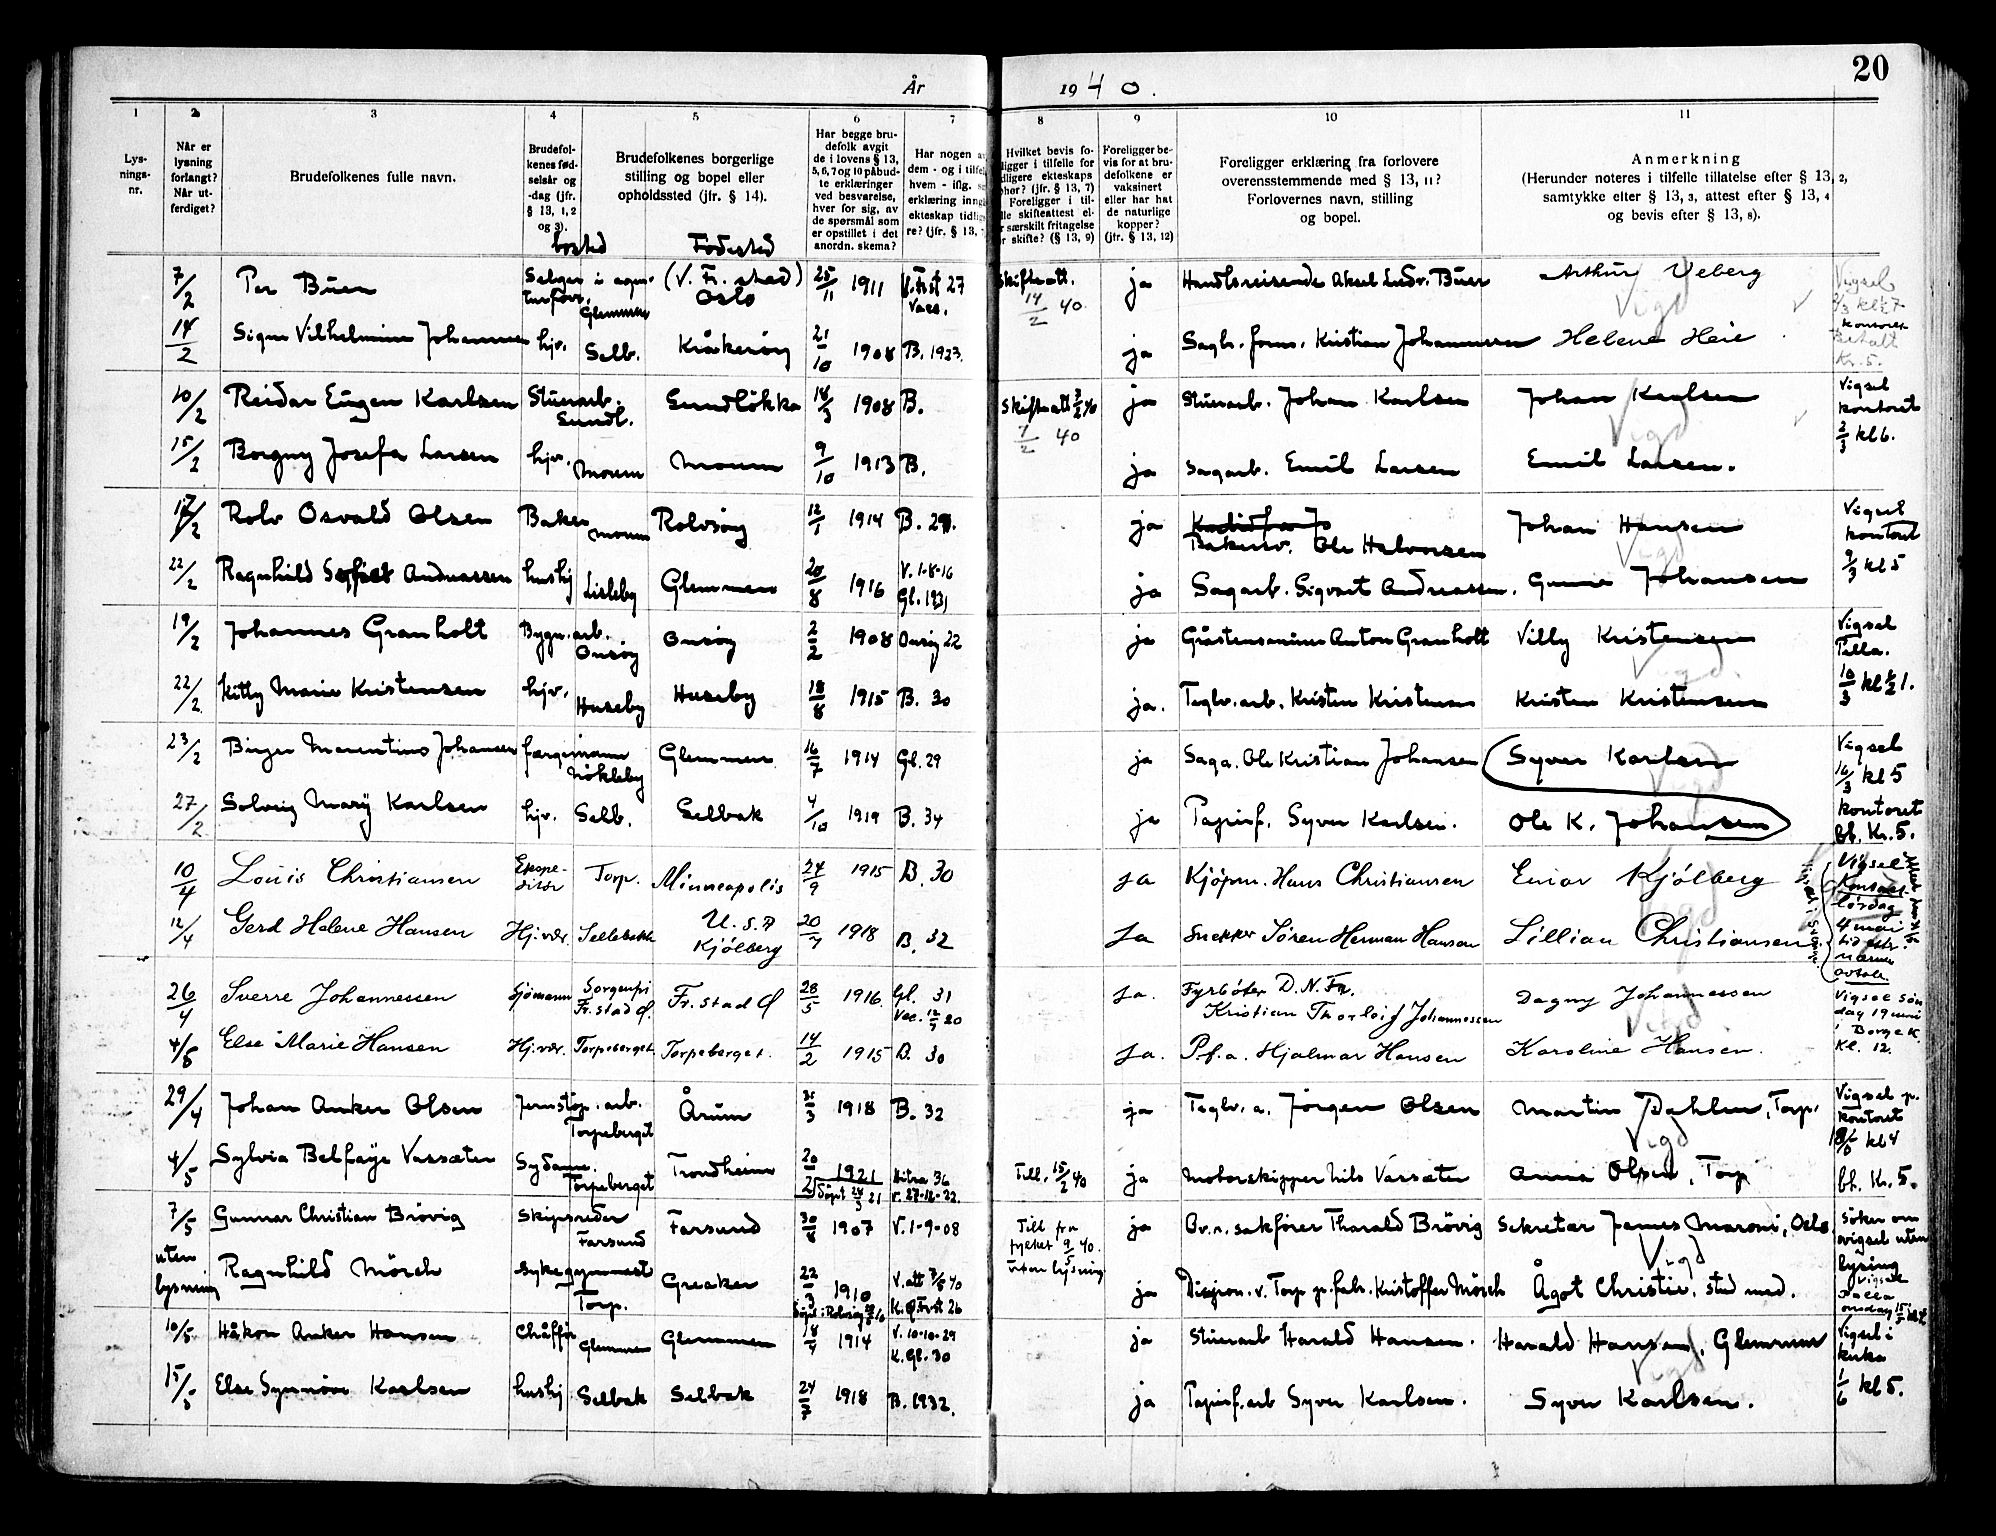 20
År 1940.
1 2 3 4 5 6 7 8 9 10 11
Lys-
nings-
nr.
Når er
lysning
forlangt?
Når ut-
ferdiget?
Brudefolkenes fulle navn.
Brudefol-
kenes fød-
selsår og
-dag (jfr.
§ 13, 1, 2
og 3).
Brudefolkenes borgerlige
stilling og bopel eller
opholdssted (jfr. § 14).
Har begge bru-
defolk avgit
de i lovens § 13,
5, 6, 7 og 10 påbud-
te erklæringer
ved besvarelse,
hver for sig, av
de spørsmål som
er opstillet i det
anordn. skema?
Har nogen a
dem - og i tilfel
hvem - iflg. s
erklæring inng
ekteskap tidlig
re? (jfr. § 13,
Hvilket bevis fo-
ligger i tilfelle for
dligere ekteskaps
phør? (jfr. § 13, 7)
Foreligger i til-
lle skifteattest el-
r særskilt fritagelse
r skifte? (§ 13, 9)
Foreligger be-
vis for at bru-
defolkene er
vaksinert
eller har hat
de naturlige
kopper?
(jfr. § 13, 12)
Foreligger erklæring fra forlovere
overensstemmende med § 13, 11?
Forlovernes navn, stilling
og bopel.
Anmerkning
(Herunder noteres i tilfelle tillatelse efter § 13, 2,
samtykke efter § 13, 3, attest efter § 13, 4
og bevis efter § 13, 8).
bosted Fødested
7/2 Per Buer Selger i (V. Fr. stad) Oslo Glemmen 25/11 1911 V. Frst 27 Skifteatt. 14/2 40 ja Handlsreisende Aksel Ludv. Buer Arthur Veberg
14/2 Signe Vilhelmine Johannesen hjv. Selb. Kråkerøy 21/10 1908 B. 1923. ja Kristian Johannesen Helene Heie
Vigsel kontoret Betalt Kr. 5.
Vigd
10/2 Reidar Eugen Karlsen Stuerarb. Sundl. Sundløkka 18/3 1908 B. Skifteatt 7/2 40 ja Stuerarb. Johan Karlsen Johan Karlsen Vigsel kontoret 2/3 kl 6.
Vigd
15/2 Borgny Josefa Larsen hjv. Moum Moum 9/10 1913 B. ja Sagarb. Emil Larsen Emil Larsen.
17/2 Rolv Osvald Olsen Baker Moum Rolvsøy 12/1 1914 B. 29. ja Ole Halvorsen Johan Hansen Vigsel kontoret 9/3 kl 5
Vigd
22/2 Ragnhild Andreassen hushj Lisleby Glemmen 20/8 1916 V. 1-8-16 Gl. 1931 ja Sagarb. Sigvart Andreassen. Gunnie Johansen
19/2 Johannes Granholt Bygn.arb. Onsøy Onsøy 2/2 1908 Onsøy 22 ja Anton Granholt Villy Kristensen Vigsel
Vigd
22/2 Kitty Marie Kristensen hjv. Huseby Huseby 18/8 1915 B. 30 ja. Teglv.arb. Kristen Kristensen Kristen Kristensen 10/3 kl 1/2 1.
23/2 Birger Marentius Johansen færgemann Nökleby Glemmen 16/7 1914 Gl. 29 ja Saga. Ole Kristian Johansen Syver Karlsen Vigsel 16/3 kl 5
Vigd
27/2 Solveig Mary Karlsen hjv. Selb. Selbak 4/10 1919 B. 34 ja Papirf. Syver Karlsen. Ole K. Johansen kontoret bt. Kr. 5.
10/4 Louis Christiansen Ekspeditør Torp. Minneapolis U.S.A 24/9 1915 B. 30 ja Kjöpm. Hans Christiansen Einar Kjölberg
Vigd
12/4 Gerd Helene Hansen Hj.vær. Sellebakk Kjölberg 20/7 1918 B. 32 Ja Snekker Sören Herman Hansen Lillian Christiansen
Vigsel Kontoret lørdag 4 mai nærmere avtale.
26/4 Sverre Johannessen Sjömann Sorgenfri Fr.stad Ø. Fr.stad Ø 28/5 1916 Gl. 31 Vac. 12/7 20 Ja. Fyrböter D.N.Fr. Kristian Thorleif Johannessen Dagny Johannessen
Vigd
4/5 Else Marie Hansen Hj.vær. Torpeberget Torpeberget. 14/2 1915 B. 30 Ja. P.f.a. Hjalmar Hansen Karoline Hansen.
Vigsel søndag 19 mai i Borge K. Kl. 12.
29/4 Johan Anker Olsen Jernstøp.arb. Torpeberget Årum 31/3 1918 B. 32 ja Teglv. a. Jörgen Olsen Martin Dahlin, Torp. Vigsel p. kontoret kl 4
Vigd
4/5 Sylvia Belfaye Vassæter Sydame. Torpeberget Trondheim 20/2 1921 döpt 24/3 21 Hitra 36 V. 27-12-22. Till. 15/2 40 ja Motorskipper Nils Vassæter Anna Olsen, Torp bt. Kr. 5.
7/5 Gunnar Christian Brövig Skipsreder Farsund Farsund 30/8 1907 V. 1-9-08 Till fra fylket 9/5 40. uten lysning ja Ov.r. sakförer Tharald Brövig Sekretær James Maroni, Oslo
Vigd
uten lysning Ragnhild Mörch Sykegymnast Torp. Greaker 22/3 1910 döpt i Rolvsøy V. att 7/5 40 K. Ø Frst 26 ja Disp. v. Torp Kristoffer Mörch Ågot Christie, stud med.
Söker om vigsel uten lysing
10/5 Håkon Anker Hansen Chåffør Glemmen Glemmen 18/7 1914 V. 10-10-29 K. Gl. 30 ja Stuerarb Harald Hansen. Harald Hansen, Glemmen Vigsel i kirka 1/6 kl 5.
Vigd
15/5 Else Synnöve Karlsen hushj Selbak Selbak 24/7 1918 B. 1932. ja Papirf.arb Syver Karlsen. Syver Karlsen.